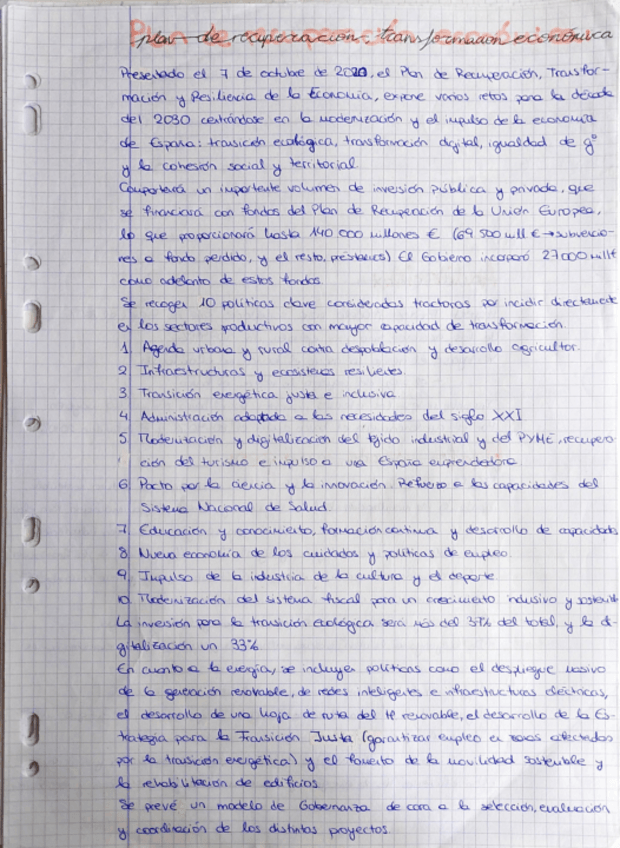 plan de recuperación transformación económica
Presentado el 7 de octubre de 2020, el Plan de Recuperación, Transfor-
mación y Resiliencia de la Economía, expone varios retos para la década
del 2030 centrándose en la modernización y el impulso de la economía
de España: transición ecológica, transformación digital, igualdad de gº
y la cohesión social y territorial.
Comportará un importante volumen de inversión pública y privada, que
se financiará con fondos del Plan de Recuperación de la Unión Europea,
lo que proporcionará hasta 140 000 millones € (69 500 mill € → subvencio-
nes a fondo perdido, y el resto, préstamos) El Gobierno incorporó 27 000 mill €
como adelanto de estos fondos.
Se recogen 10 políticas clave consideradas tractoras por incidir directamente
en los sectores productivos con mayor capacidad de transformación.
1 Agenda urbana y rural contra despoblación y desarrollo agricultor.
2 Infraestructuras y ecosistemas resilientes.
3 Transición energética justa e inclusiva
4 Administración adaptada a las necesidades del siglo XXI
5 Modernización y digitalización del tejido industrial y del PYME, recupera-
ción del turismo e impulso a una España emprendedora
6 Pacto por la ciencia y la innovación. Refuerzo a las capacidades del
Sistema Nacional de Salud.
7 Educación y conocimiento, formación continua y desarrollo de capacidades
8 Nueva economía de los cuidados y políticas de empleo
9 Impulso de la industria de la cultura y el deporte
10 Modernización del sistema fiscal para un crecimiento inclusivo y sostenible
La inversión para la transición ecológica será más del 37% del total, y la di-
gitalización un 33%
En cuanto a la energía, se incluyen políticas como el despliegue masivo
de la generación renovable, de redes inteligentes e infraestructuras eléctricas,
el desarrollo de una hoja de ruta del renovable, el desarrollo de la Es-
trategia para la Transición Justa (garantizar empleo en zonas afectadas
por la transición energética) y el fomento de la movilidad sostenible y
la rehabilitación de edificios.
Se prevé un modelo de Gobernanza de cara a la selección, evaluación
y coordinación de los distintos proyectos.